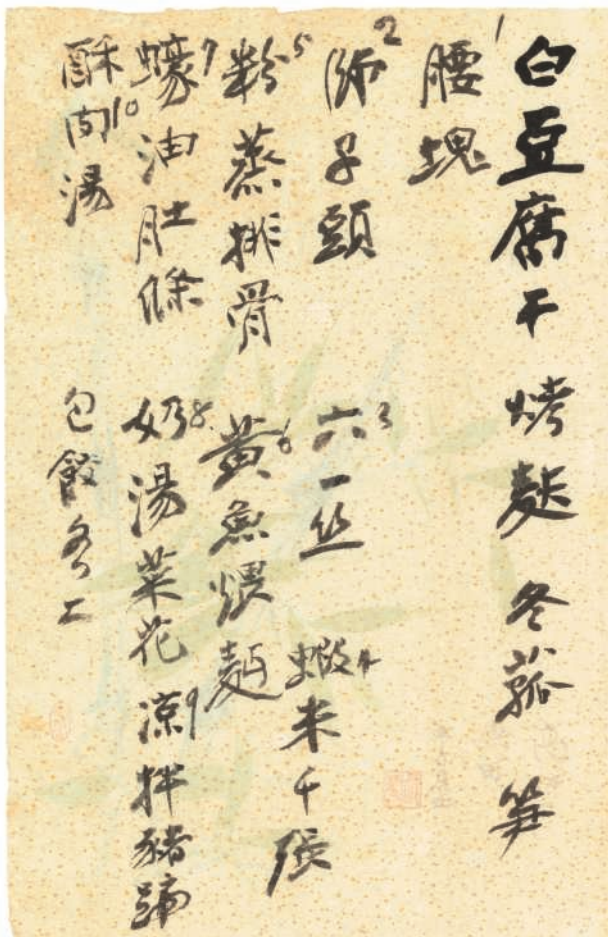 白豆腐干 烤麩 冬菰 笋
1腰塊
2師子頭 3六一丝 4蝦米千張
5粉蒸排骨 6黃魚煨麵
7蠔油肚條 8奶湯菜花 9涼拌豬蹄
10酥肉湯 包餃各二